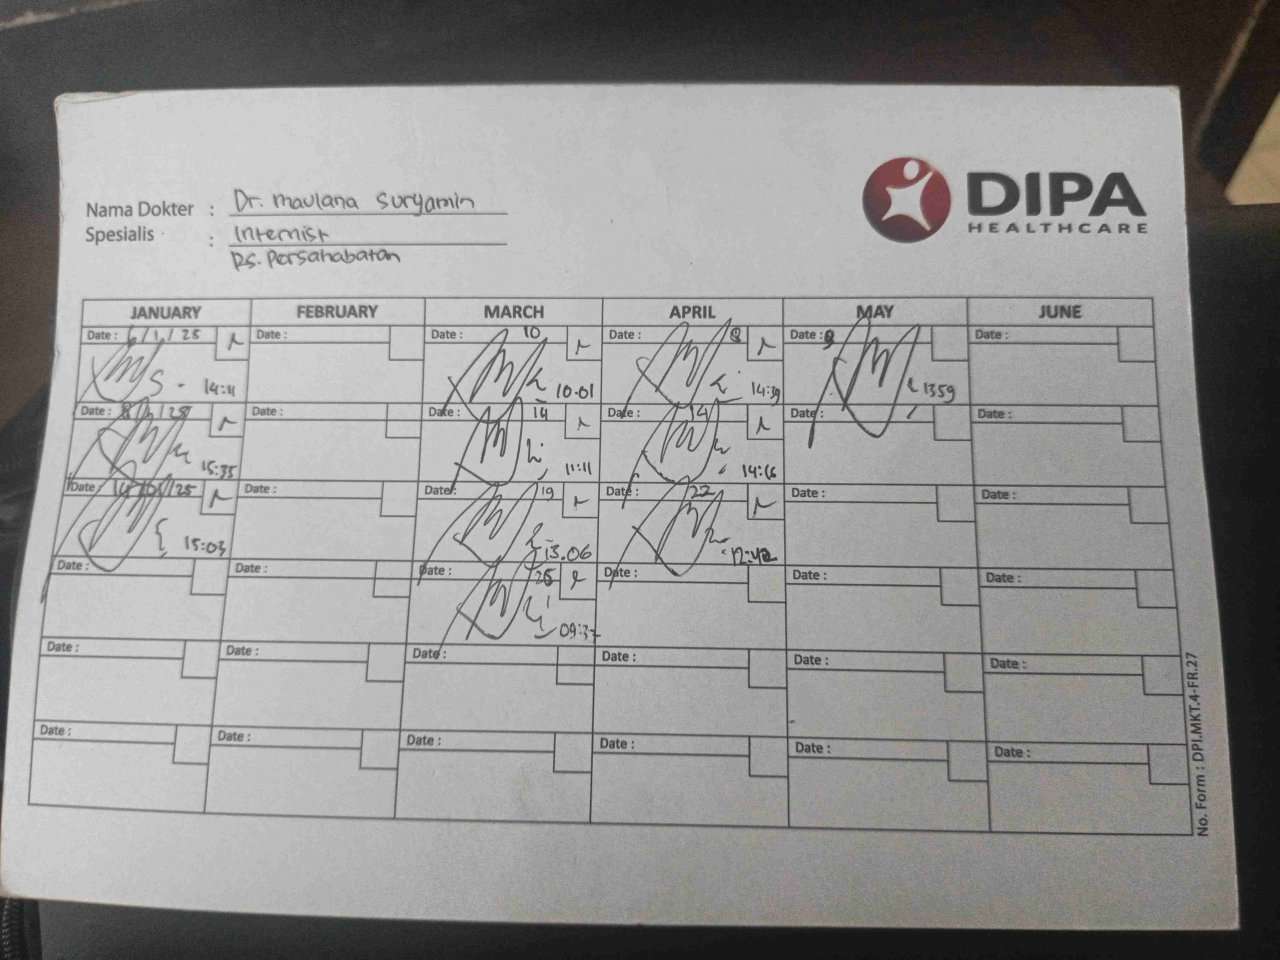 DIPA
HEALTHCARE
Nama Dokter : Dr. Maulana Suryamin
Spesialis : Internist
RS. Persahabatan
JANUARY FEBRUARY MARCH APRIL MAY JUNE
Date : 6/1/25 Date : Date : 10 Date : 8 Date : 8 Date :
14:11 10.01 14:39 1359
Date : 8/1/25 Date : Date : 14 Date : 14 Date : Date :
15:35 11:11 14:16
Date : 14/01/25 Date : Date : 19 Date : 22 Date : Date :
15:03 13.06 12:42
Date : Date : Date : 25 Date : Date : Date :
09:37
Date : Date : Date : Date : Date : Date :
Date : Date : Date : Date : Date : Date :
No. Form : DPI.MKT.4-FR.27